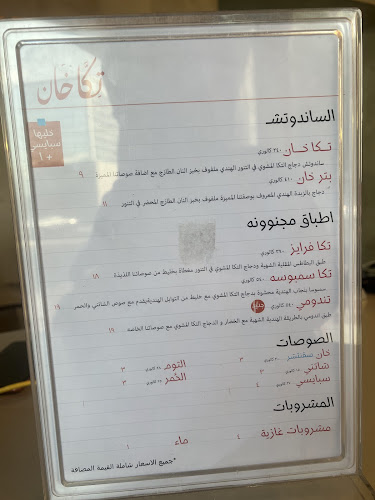 تكا خان
خليها
سبايسي
+١
الساندوتشـ
تـكـا خـان ٣٤٠ كالوري
ساندوتش دجاج التكا المشوي في التنور الهندي ملفوف بخبز النان الطازج مع اضافة صوصاتنا المميزة ٩
بتر خان ٤١٠ كالوري
دجاج بالزبدة الهندي المعروف بوصفتنا المميزة ملفوف بخبز النان الطازج المحضر في التنور ١١
اطباق مجنوونه
تكا فرايز كالوري
طبق البطاطس المقلية الشهية ودجاج التكا المشوي في التنور مغطاة بخليط من صوصاتنا اللذيذة ١٨
تكا سمبوسه كالوري
سمبوسا بلفائف الهندية محشوة بدجاج التكا المشوي مع خليط من التوابل الهندية يقدم مع صوص الشاتني والخمر ١٦
تندومي كالوري
طبق اندومي بالطريقة الهندية الشهية مع الخضار و الدجاج التكا المشوي مع صوصاتنا الخاصه ١٦
الصوصات
خان سقنتشر كالوري ٣ الثوم كالوري ٣
شاتني كالوري ٣ الخُمر كالوري ٣
سبايسي كالوري ٤
المشروبات
مشروبات غازية ٤ ماء ١
*جميع الاسعار شاملة القيمة المضافة